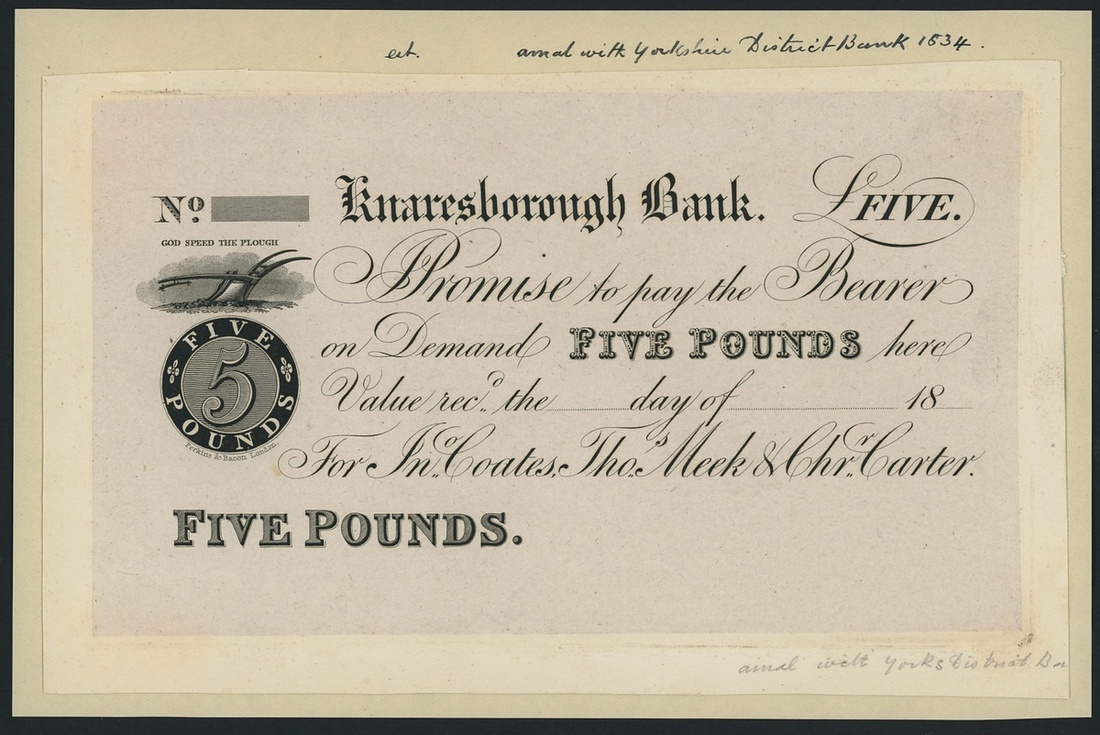 amal with Yorkshire District Bank 1834.
No.
Knaresborough Bank.
£FIVE.
GOD SPEED THE PLOUGH
I Promise to pay the Bearer
on Demand FIVE POUNDS here
Value rec.d the day of 18
FIVE
5
POUNDS
Perkins & Bacon London.
For Jn.o Coates, Tho.s Meek & Chr.r Carter.
FIVE POUNDS.
amal with Yorks District